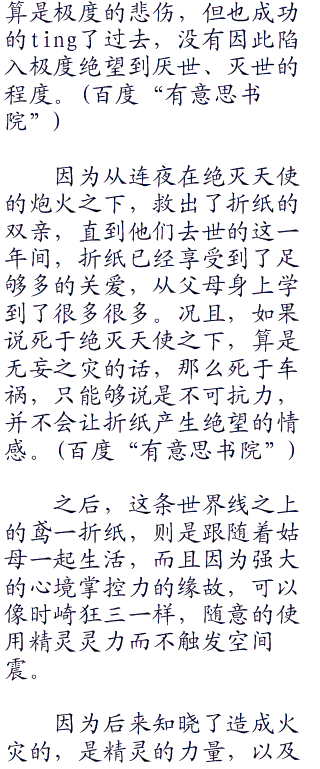 算是极度的悲伤，但也成功
的ting了过去，没有因此陷
入极度绝望到厌世、灭世的
程度。(百度“有意思书
院”)
因为从连夜在绝灭天使
的炮火之下，救出了折纸的
双亲，直到他们去世的这一
年间，折纸已经享受到了足
够多的关爱，从父母身上学
到了很多很多。况且，如果
说死于绝灭天使之下，算是
无妄之灾的话，那么死于车
祸，只能够说是不可抗力，
并不会让折纸产生绝望的情
感。(百度“有意思书院”)
之后，这条世界线之上
的鸢一折纸，则是跟随着姑
母一起生活，而且因为强大
的心境掌控力的缘故，可以
像时崎狂三一样，随意的使
用精灵灵力而不触发空间
震。
因为后来知晓了造成火
灾的，是精灵的力量，以及